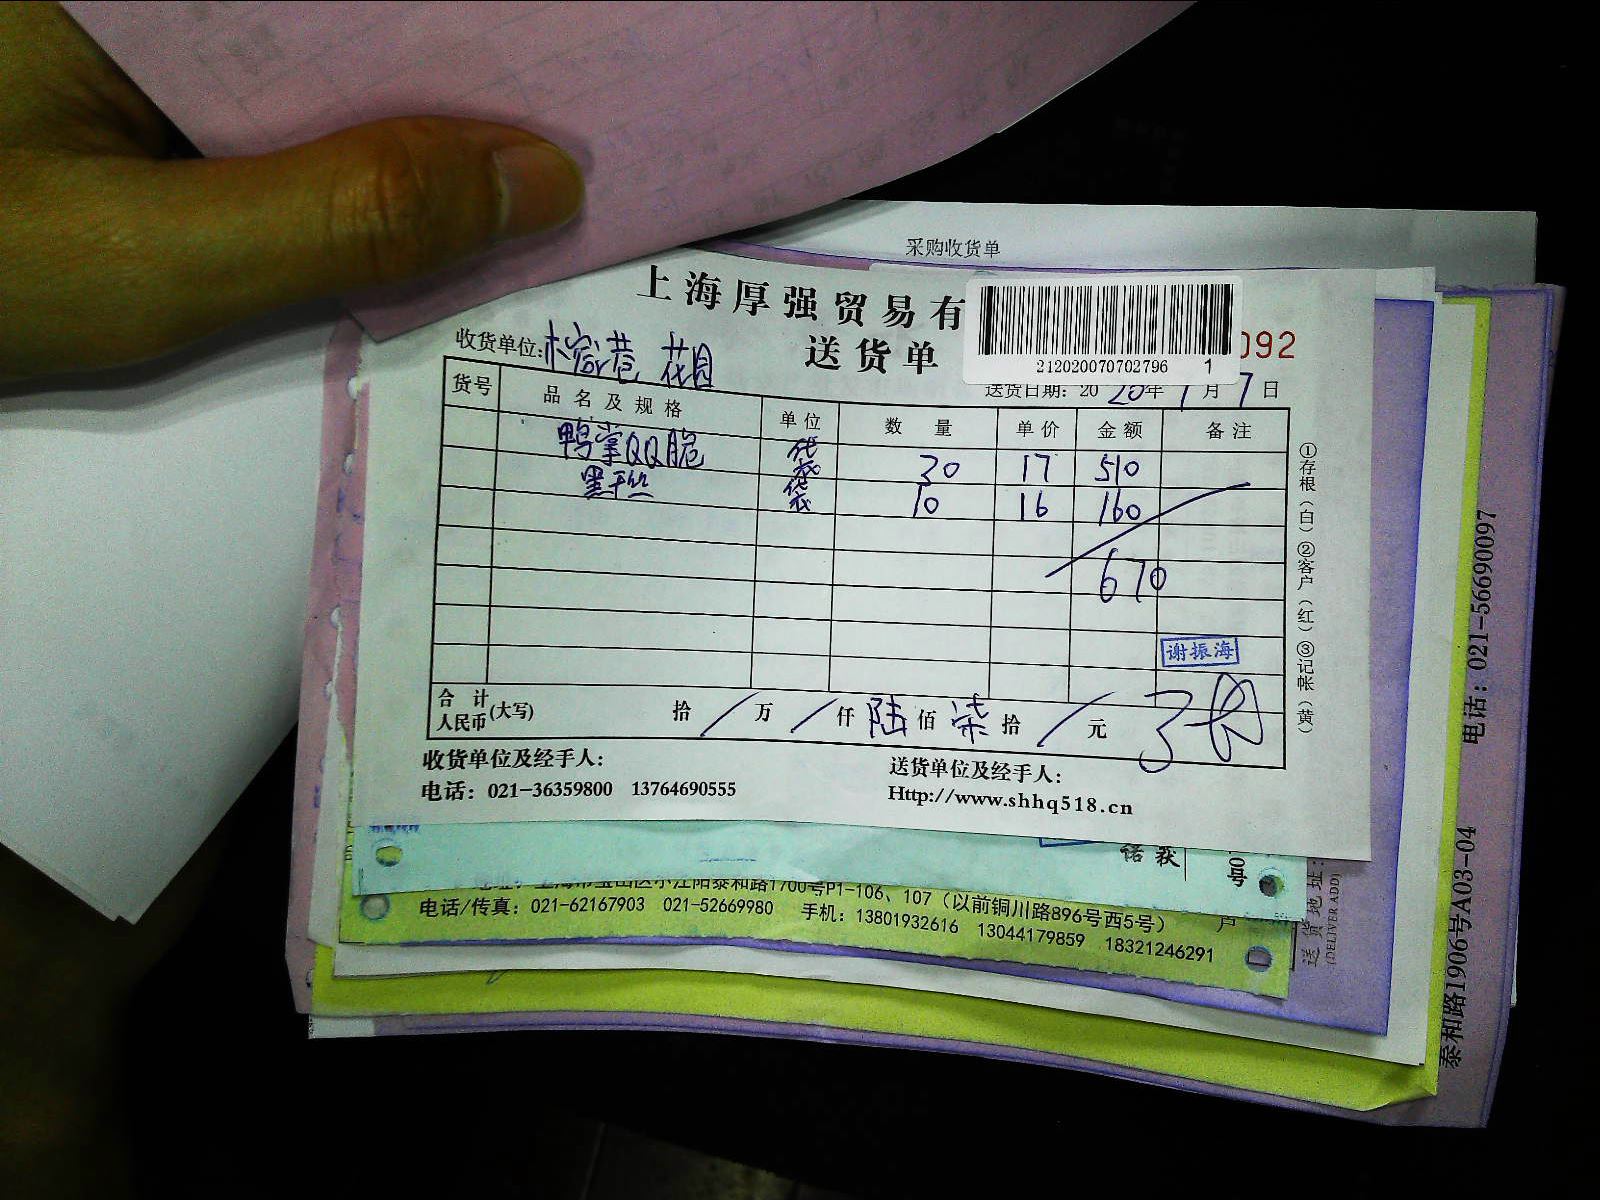 采购收货单
上海厚强贸易有
送货单
092
212020070702796 1
收货单位: 花园
送货日期: 2020年 7月 7日
货号 品名及规格 单位 数量 单价 金额 备注
鸭掌QQ脆 袋 30 17 510
黑千丝 袋 10 16 160
670
谢振海
合计人民币(大写) 拾 / 万 / 仟 陆 佰 柒 拾 / 元
收货单位及经手人:
送货单位及经手人:
电话: 021-36359800 13764690555
Http://www.shhq518.cn
①存根(白)②客户(红)③记帐(黄)
泰和路1700号P1-106、107 (以前铜川路896号西5号)
电话/传真: 021-62167903 021-52669980 手机: 13801932616 13044179859 18321246291
户
号
送货地址:
(DELIVER ADD)
泰和路1906号A03-04 电话: 021-56690097